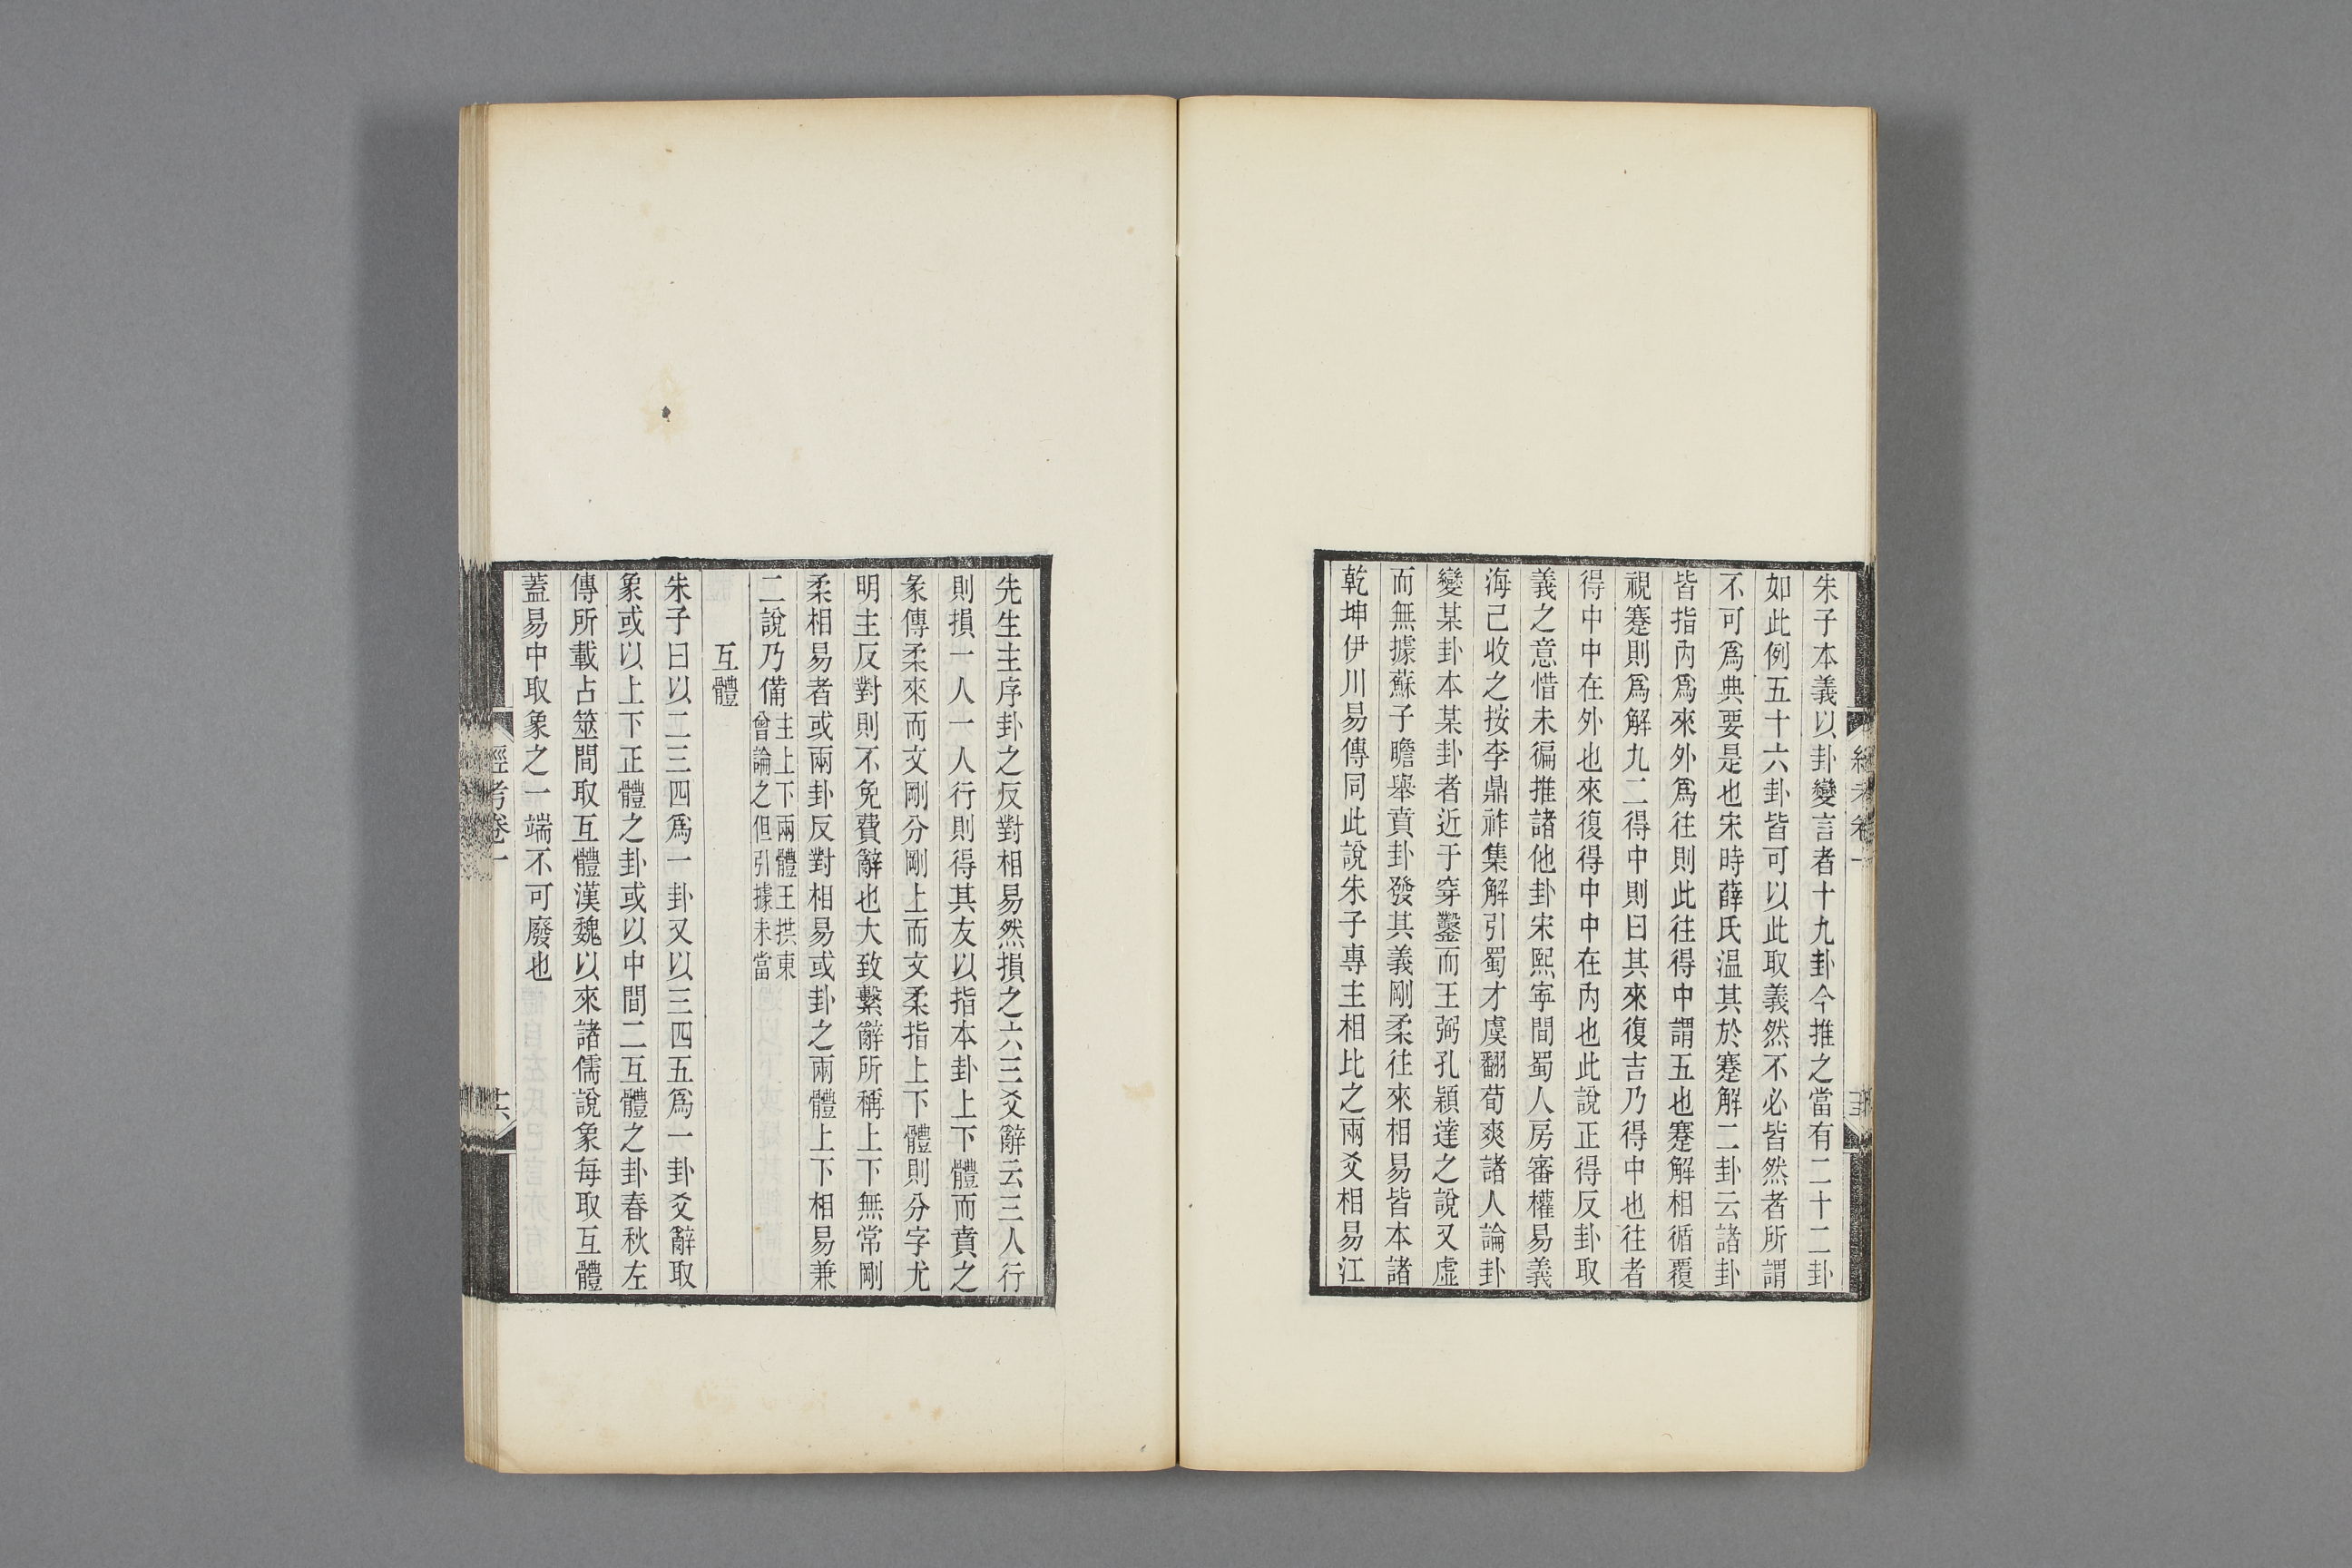 朱子本義以卦變言者十九卦今推之當有二十二卦
如此例五十六卦皆可以此取義然不必皆然者所謂
不可爲典要是也宋時薛氏温其於蹇解二卦云諸卦
皆指內爲來外爲往則此往得中謂五也蹇解相循覆
視蹇則爲解九二得中則曰其來復吉乃得中也往者
得中中在外也來復得中中在內也此說正得反卦取
義之意惜未徧推諸他卦宋熙寧間蜀人房審權易義
海己收之按李鼎祚集解引蜀才虞翻荀爽諸人論卦
變某卦本某卦者近于穿鑿而王弼孔穎達之說又虛
而無據蘇子瞻舉賁卦發其義剛柔往來相易皆本諸
乾坤伊川易傳同此說朱子專主相比之兩爻相易江
先生主序卦之反對相易然損之六三爻辭云三人行
則損一人一人行則得其友以指本卦上下體而賁之
彖傳柔來而文剛分剛上而文柔指上下體則分字尤
明主反對則不免費辭也大致繫辭所稱上下無常剛
柔相易者或兩卦反對相易或卦之兩體上下相易兼
二說乃備
主上下兩體王拱東
曾論之但引據未當
互體
朱子曰以二三四爲一卦又以三四五爲一卦爻辭取
象或以上下正體之卦或以中間二互體之卦春秋左
傳所載占筮間取互體漢魏以來諸儒說象每取互體
蓋易中取象之一端不可廢也
經考卷一